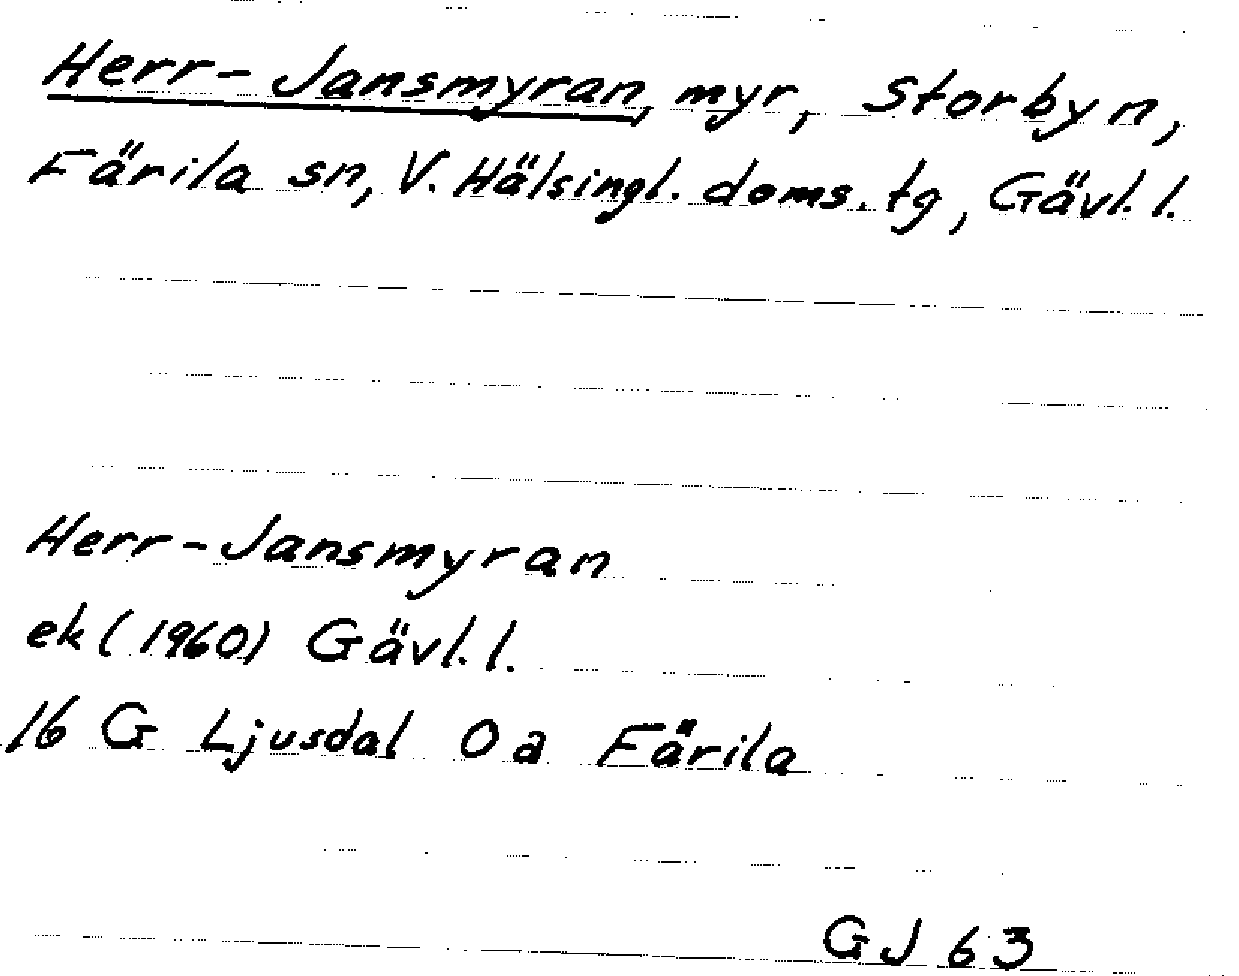 Herr-Jansmyran, myr, Storbyn,
Färila sn, V. Hälsingl. doms. tg, Gävl. l.
Herr-Jansmyran
ek (1960) Gävl. l.
16 G Ljusdal 0 a Färila
GJ 63